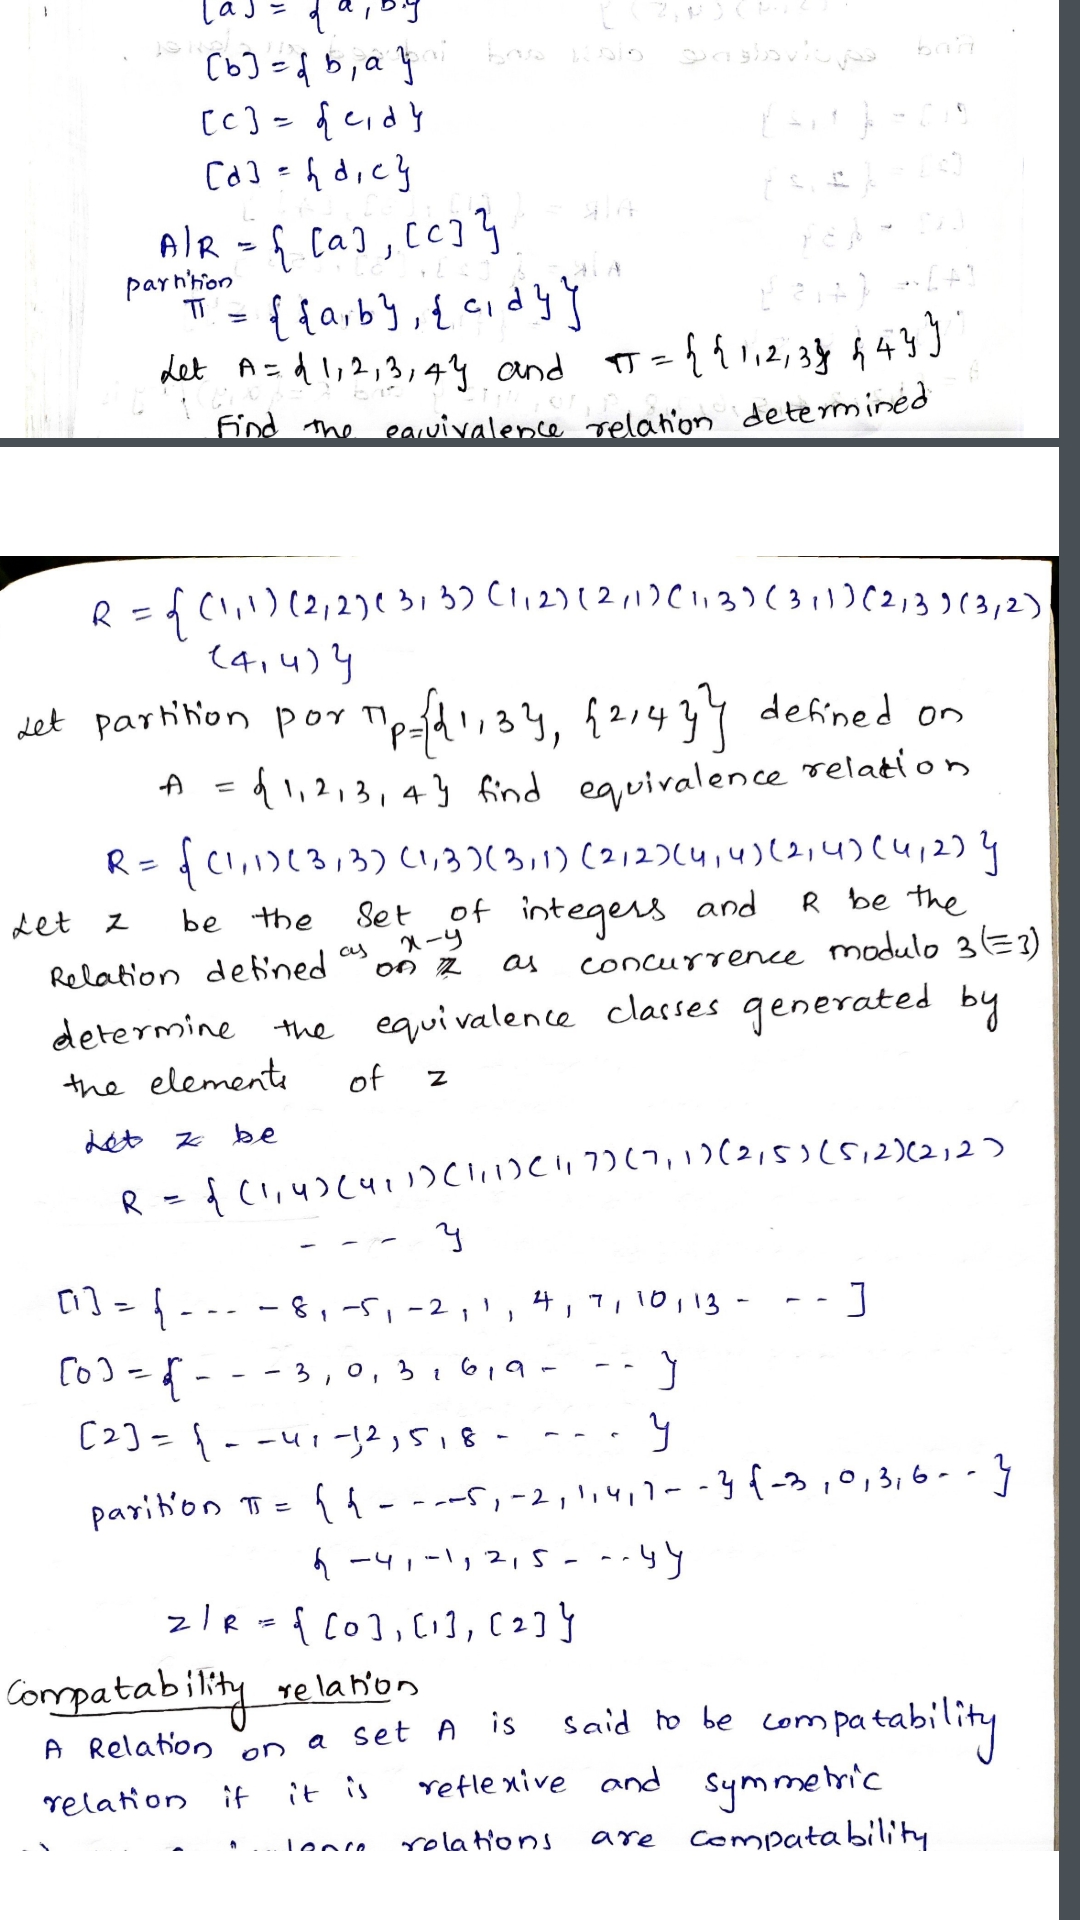 [a] = { a, b}
[b] = { b, a }
[c] = { c, d }
[d] = { d, c }
A|R = { [a], [c] }
partition
π = { {a, b}, { c, d } }
Let A = { 1, 2, 3, 4 } and π = { { 1, 2, 3} { 4 } }
Find the equivalence relation determined
R = { (1,1) (2,2) (3,3) (1,2) (2,1) (1,3) (3,1) (2,3) (3,2)
(4,4) }
Let partition por π P= { { 1, 3 }, { 2, 4 } } defined on
A = { 1, 2, 3, 4 } find equivalence relation
R = { (1,1) (3,3) (1,3) (3,1) (2,2) (4,4) (2,4) (4,2) }
Let z be the Set of integers and R be the
Relation defined as x-y on z as concurrence modulo 3 (≡3)
determine the equivalence classes generated by
the elements of z
Let z be
R = { (1,4) (4,1) (1,1) (1,7) (7,1) (2,5) (5,2) (2,2)
- - - }
[1] = { - - - - 8, -5, -2, 1, 4, 7, 10, 13 - - - ]
[0] = { - - - 3, 0, 3, 6, 9 - - - }
[2] = { - - 4, -1, 2, 5, 8 - - - - }
parition π = { { - - - -5, -2, 1, 4, 7 - - } { -3, 0, 3, 6 - - }
{ -4, -1, 2, 5 - - - } }
z | R = { [0], [1], [2] }
Compatability relation
A Relation on a set A is said to be compatability
relation if it is reflexive and symmetric
relations are compatability